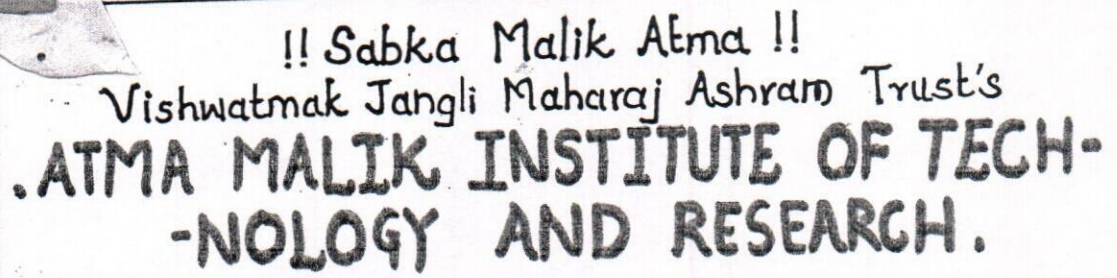 !! Sabka Malik Atma !!
Vishwatmak Jangli Maharaj Ashram Trust's
.ATMA MALIK INSTITUTE OF TECH-
-NOLOGY AND RESEARCH.